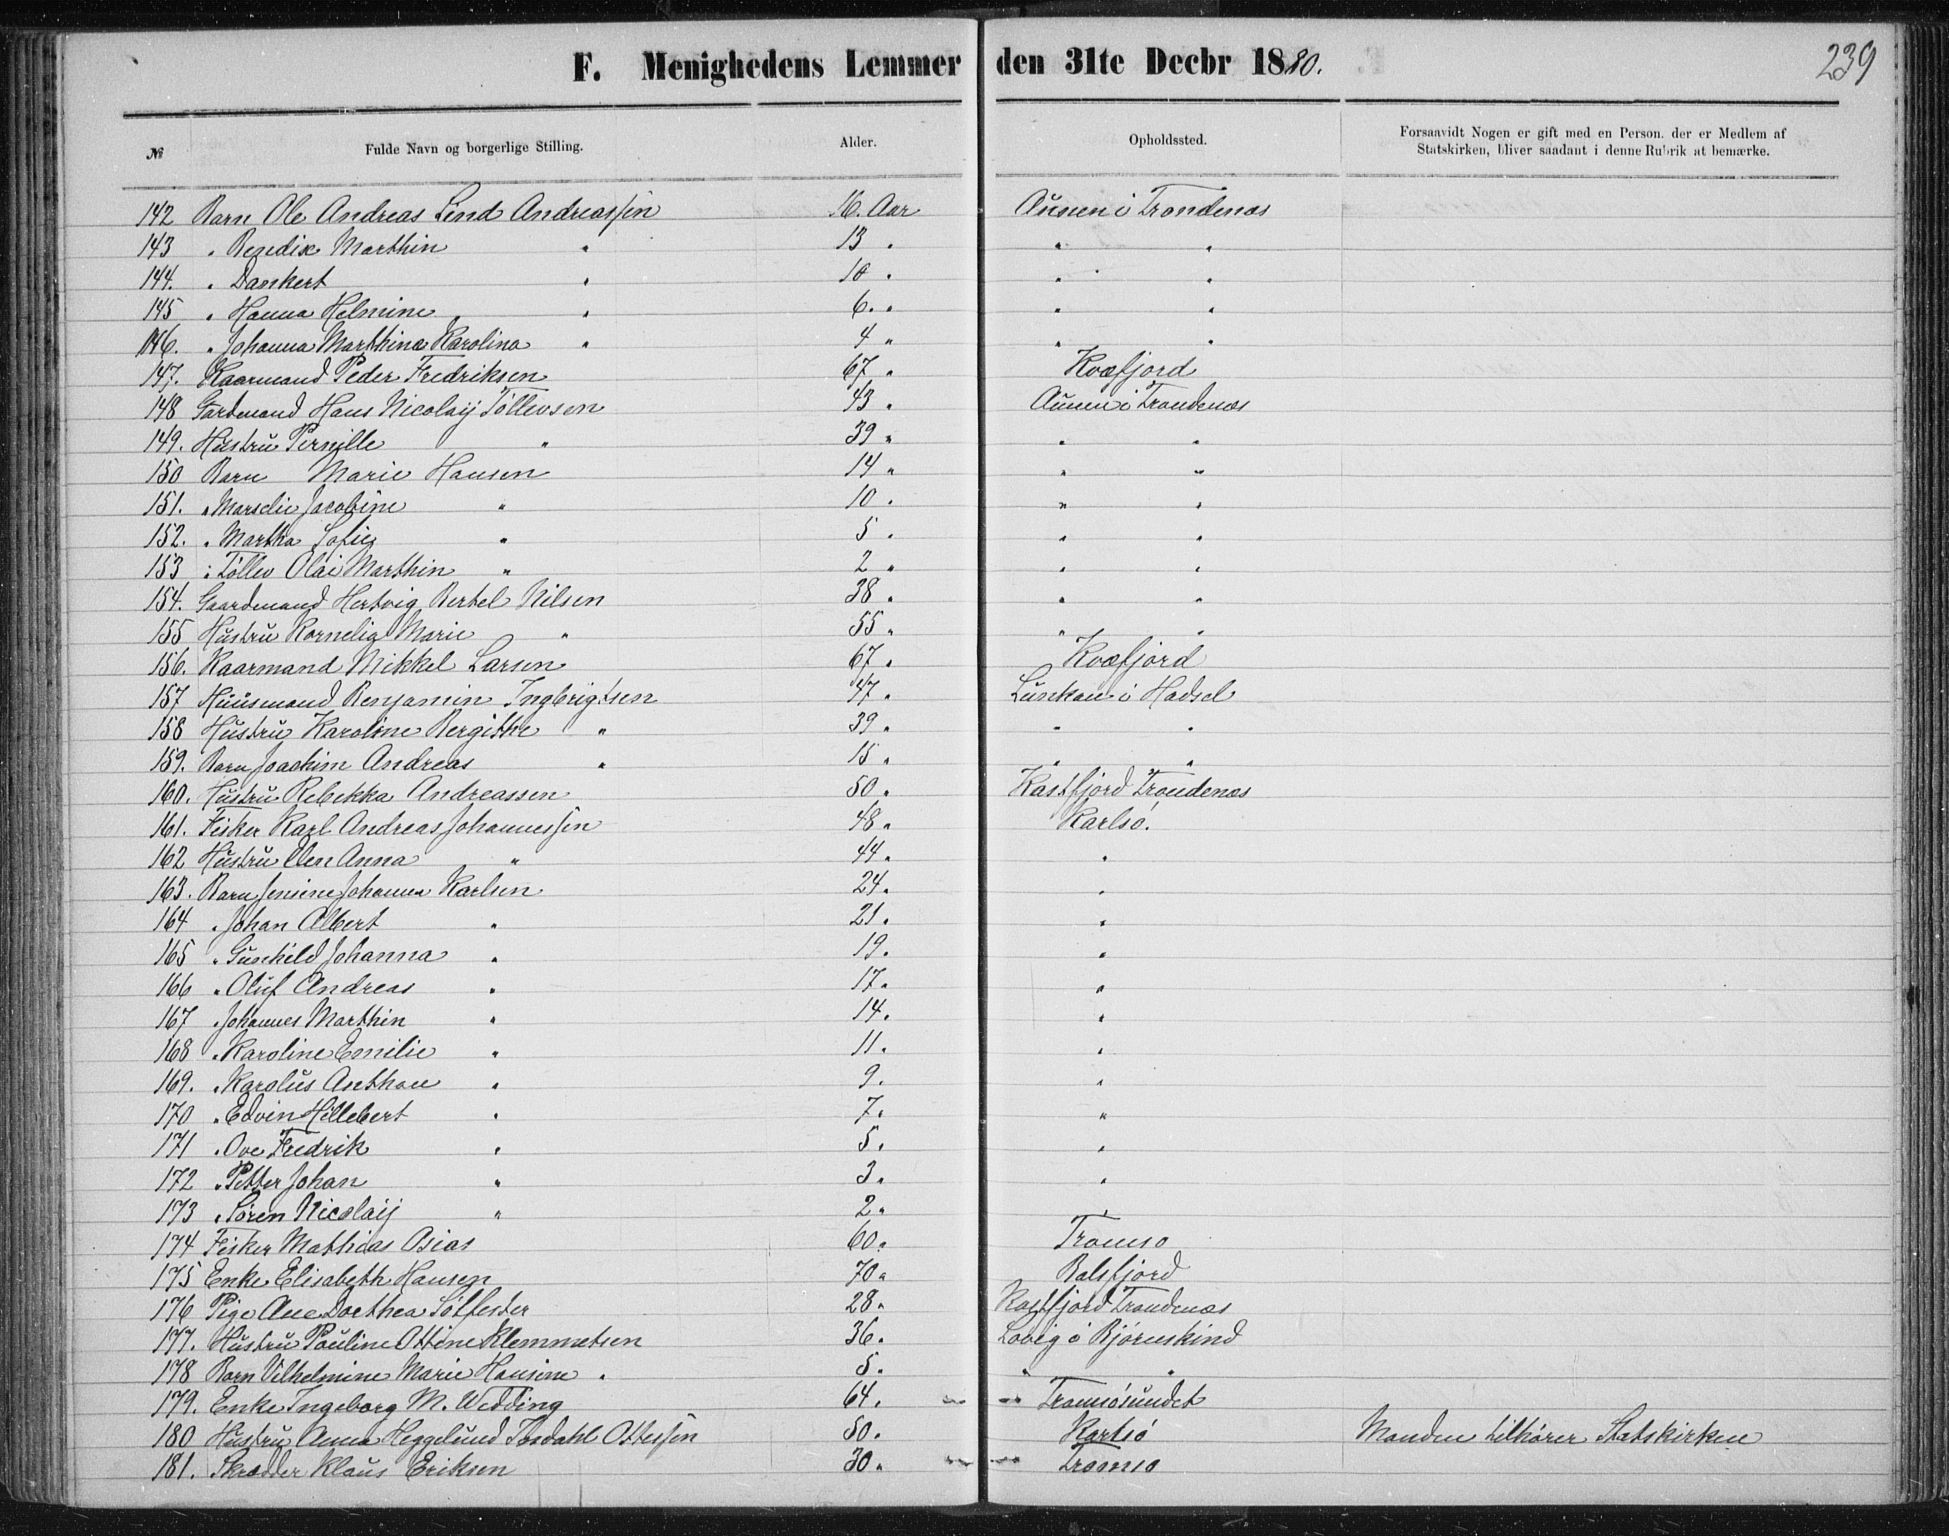 239
F. Menighedens Lemmer den 31te Decbr 1880.
№ Fulde Navn og borgerlige Stilling. Alder. Opholdssted. Forsaavidt Nogen er gift med en Person, der er Medlem af
Statskirken, bliver saadant i denne Rubrik at bemærke.
142 Barn Ole Andreas Lind Andreassen 16. Aar Aunen i Trondenæs
143 " Bendix Marthin " 13 " " "
144. " Dankert " 10 " " "
145 " Hanna Helmine " 6. " " "
146. " Johanna Marthina Karolina " 4 " " "
147. Kaarmand Peder Fredriksen 67 " Kvæfjord
148 Gardmand Hans Nicolaij Tøllevsen 43 " Aunen i Trondenæs
149. Hustru Pernille " 39 " " "
150 Barn Marie Hansen 14 " " "
151. " Marselie Jacobine " 10 " " "
152. " Martha Sofie " 5 " " "
153 " Tøllev Olai Marthin " 2 " " "
154. Gaardmand Hertvig Bertel Nilsen 38 " " "
155 Hustru Kornelia Marie " 55 " " "
156. Kaarmand Mikkel Larsen 67 " Kvæfjord
157 Huusmand Benjamin Ingbrigtsen 47 " Lunkan i Hadsel
158 Hustru Karoline Bergitte " 39 " " "
159. Barn Joachim Andreas " 15 " " "
160. Hustru Rebekka Andreassen 50 " Kastfjord Trondenæs
161. Fisker Karl Andreas Johannessen 48 " Karlsø.
162 Hustru Elen Anna " 44 " "
163. Barn Jensine Johanna Karlsen 24 " "
164 " Johan Albert " 21 " "
165 " Gunhild Johanna " 19 " "
166 " Oluf Andreas " 17 " "
167 " Johannes Marthin " 14 " "
168 " Karoline Emilie " 11 " "
169. " Karolus Anthon " 9 " "
170 " Edvin Hillebert " 7 " "
171 " Ove Fredrik " 5 " "
172 " Petter Johan " 3 " "
173 " Søren Nicolaij " 2 " "
174 Fisker Mathias Osias 60 " Tromsø
175 Enke Elisabeth Hansen 70 " Balsfjord
176 Pige Ane Dorthea Sølfester 28 " Kastfjord Trondenæs
177. Hustru Pauline Ottine Klemmetsen 36 " Lovig i Bjørneskind
178 Barn Vilhelmine Marie Hansine " 5 " " "
179. Enke Ingeborg M. Wedding 64 " Tromsøsundet
180 Hustru Anna Heggelund Ottessen 50 " Karlsø Manden tilhører Statskirken
181. Skrædder Klaus Eriksen 30 " Tromsø